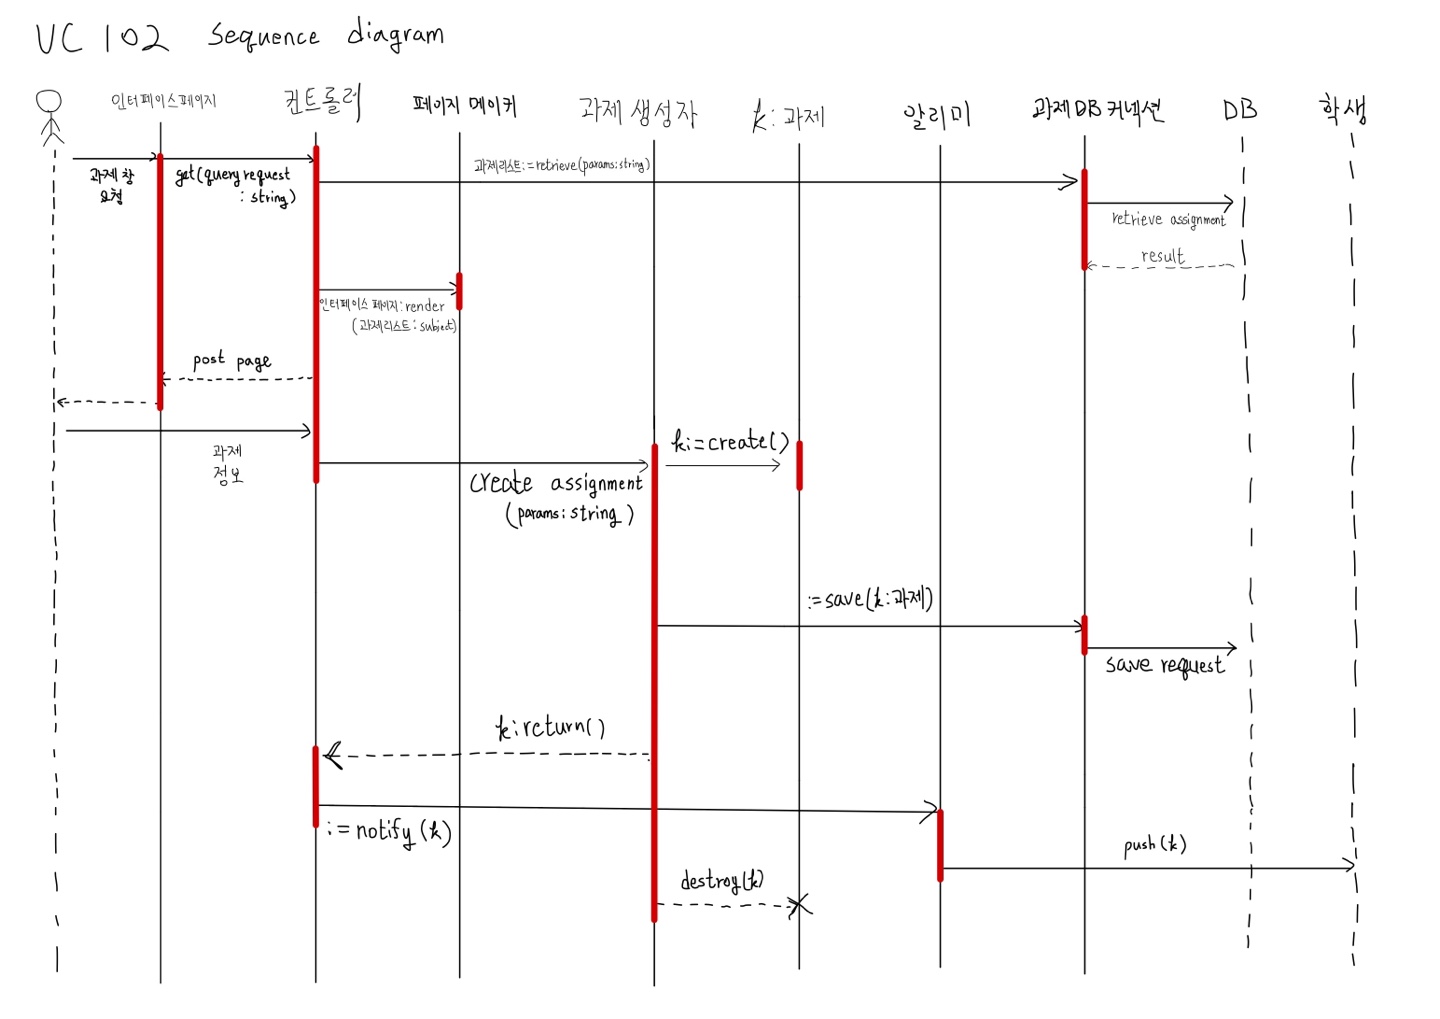 UC 102 Sequence diagram
인터페이스페이지
컨트롤러
페이지 메이커
과제 생성자
k:과제
알리미
과제DB커넥션
DB
학생
과제 창
요청
get(query request
: string)
과제리스트:=retrieve(params:string)
retrieve assignment
result
인터페이스 페이지:render
(과제리스트:subject)
post page
과제
정보
k:=create()
create assignment
(params:string)
:=save(k:과제)
save request
k:return()
:=notify(k)
push(k)
destroy(k)